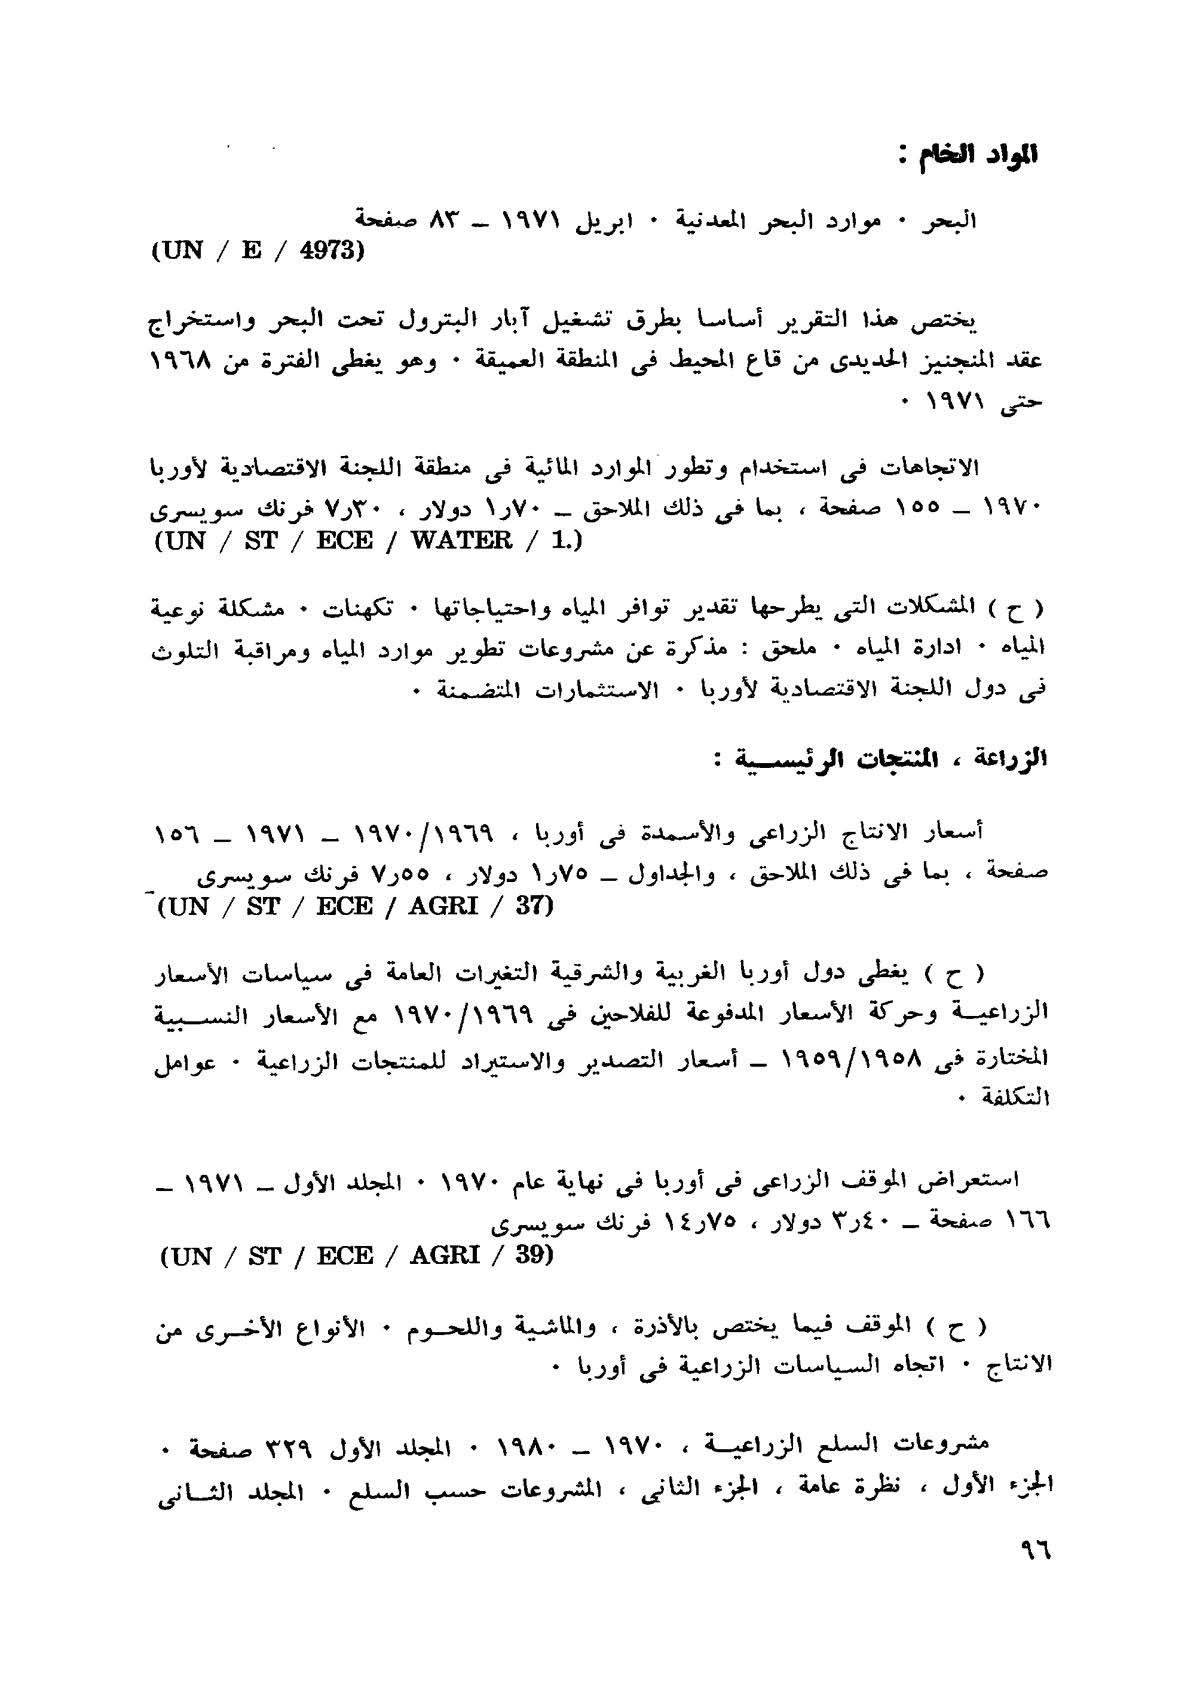 المواد الخام :
البحر ٠ موارد البحر المعدنية ٠ ابريل ١٩٧١ ـ ٨٣ صفحة
(UN / E / 4973)
يختص هذا التقرير أساسا بطرق تشغيل آبار البترول تحت البحر واستخراج
عقد المنجنيز الحديدى من قاع المحيط فى المنطقة العميقة ٠ وهو يغطى الفترة من ١٩٦٨
حتى ١٩٧١ ٠
الاتجاهات فى استخدام وتطور الموارد المائية فى منطقة اللجنة الاقتصادية لأوربا
١٩٧٠ ـ ١٥٥ صفحة ، بما فى ذلك الملاحق ـ ٧٠ر١ دولار ، ٣٠ر٧ فرنك سويسرى
(UN / ST / ECE / WATER / 1.)
( ح ) المشكلات التى يطرحها تقدير توافر المياه واحتياجاتها ٠ تكهنات ٠ مشكلة نوعية
المياه ٠ ادارة المياه ٠ ملحق : مذكرة عن مشروعات تطوير موارد المياه ومراقبة التلوث
فى دول اللجنة الاقتصادية لأوربا ٠ الاستثمارات المتضمنة ٠
الزراعة ، المنتجات الرئيســية :
أسعار الانتاج الزراعى والأسمدة فى أوربا ، ١٩٧٠/١٩٦٩ ـ ١٩٧١ ـ ١٥٦
صفحة ، بما فى ذلك الملاحق ، والجداول ـ ٧٥ر١ دولار ، ٥٥ر٧ فرنك سويسرى
(UN / ST / ECE / AGRI / 37)
( ح ) يغطى دول أوربا الغربية والشرقية التغيرات العامة فى سياسات الأسعار
الزراعيــة وحركة الأسعار المدفوعة للفلاحين فى ١٩٧٠/١٩٦٩ مع الأسعار النســبية
المختارة فى ١٩٥٩/١٩٥٨ ـ أسعار التصدير والاستيراد للمنتجات الزراعية ٠ عوامل
التكلفة ٠
استعراض الموقف الزراعى فى أوربا فى نهاية عام ١٩٧٠ ٠ المجلد الأول ـ ١٩٧١ ـ
١٦٦ صفحة ـ ٤٠ر٣ دولار ، ٧٥ر١٤ فرنك سويسرى
(UN / ST / ECE / AGRI / 39)
( ح ) الموقف فيما يختص بالأذرة ، والماشية واللحــوم ٠ الأنواع الأخــرى من
الانتاج ٠ اتجاه السياسات الزراعية فى أوربا ٠
مشروعات السلع الزراعيــة ، ١٩٧٠ ـ ١٩٨٠ ٠ المجلد الأول ٣٢٩ صفحة ٠
الجزء الأول ، نظرة عامة ، الجزء الثانى ، المشروعات حسب السلع ٠ المجلد الثــانى
٩٦